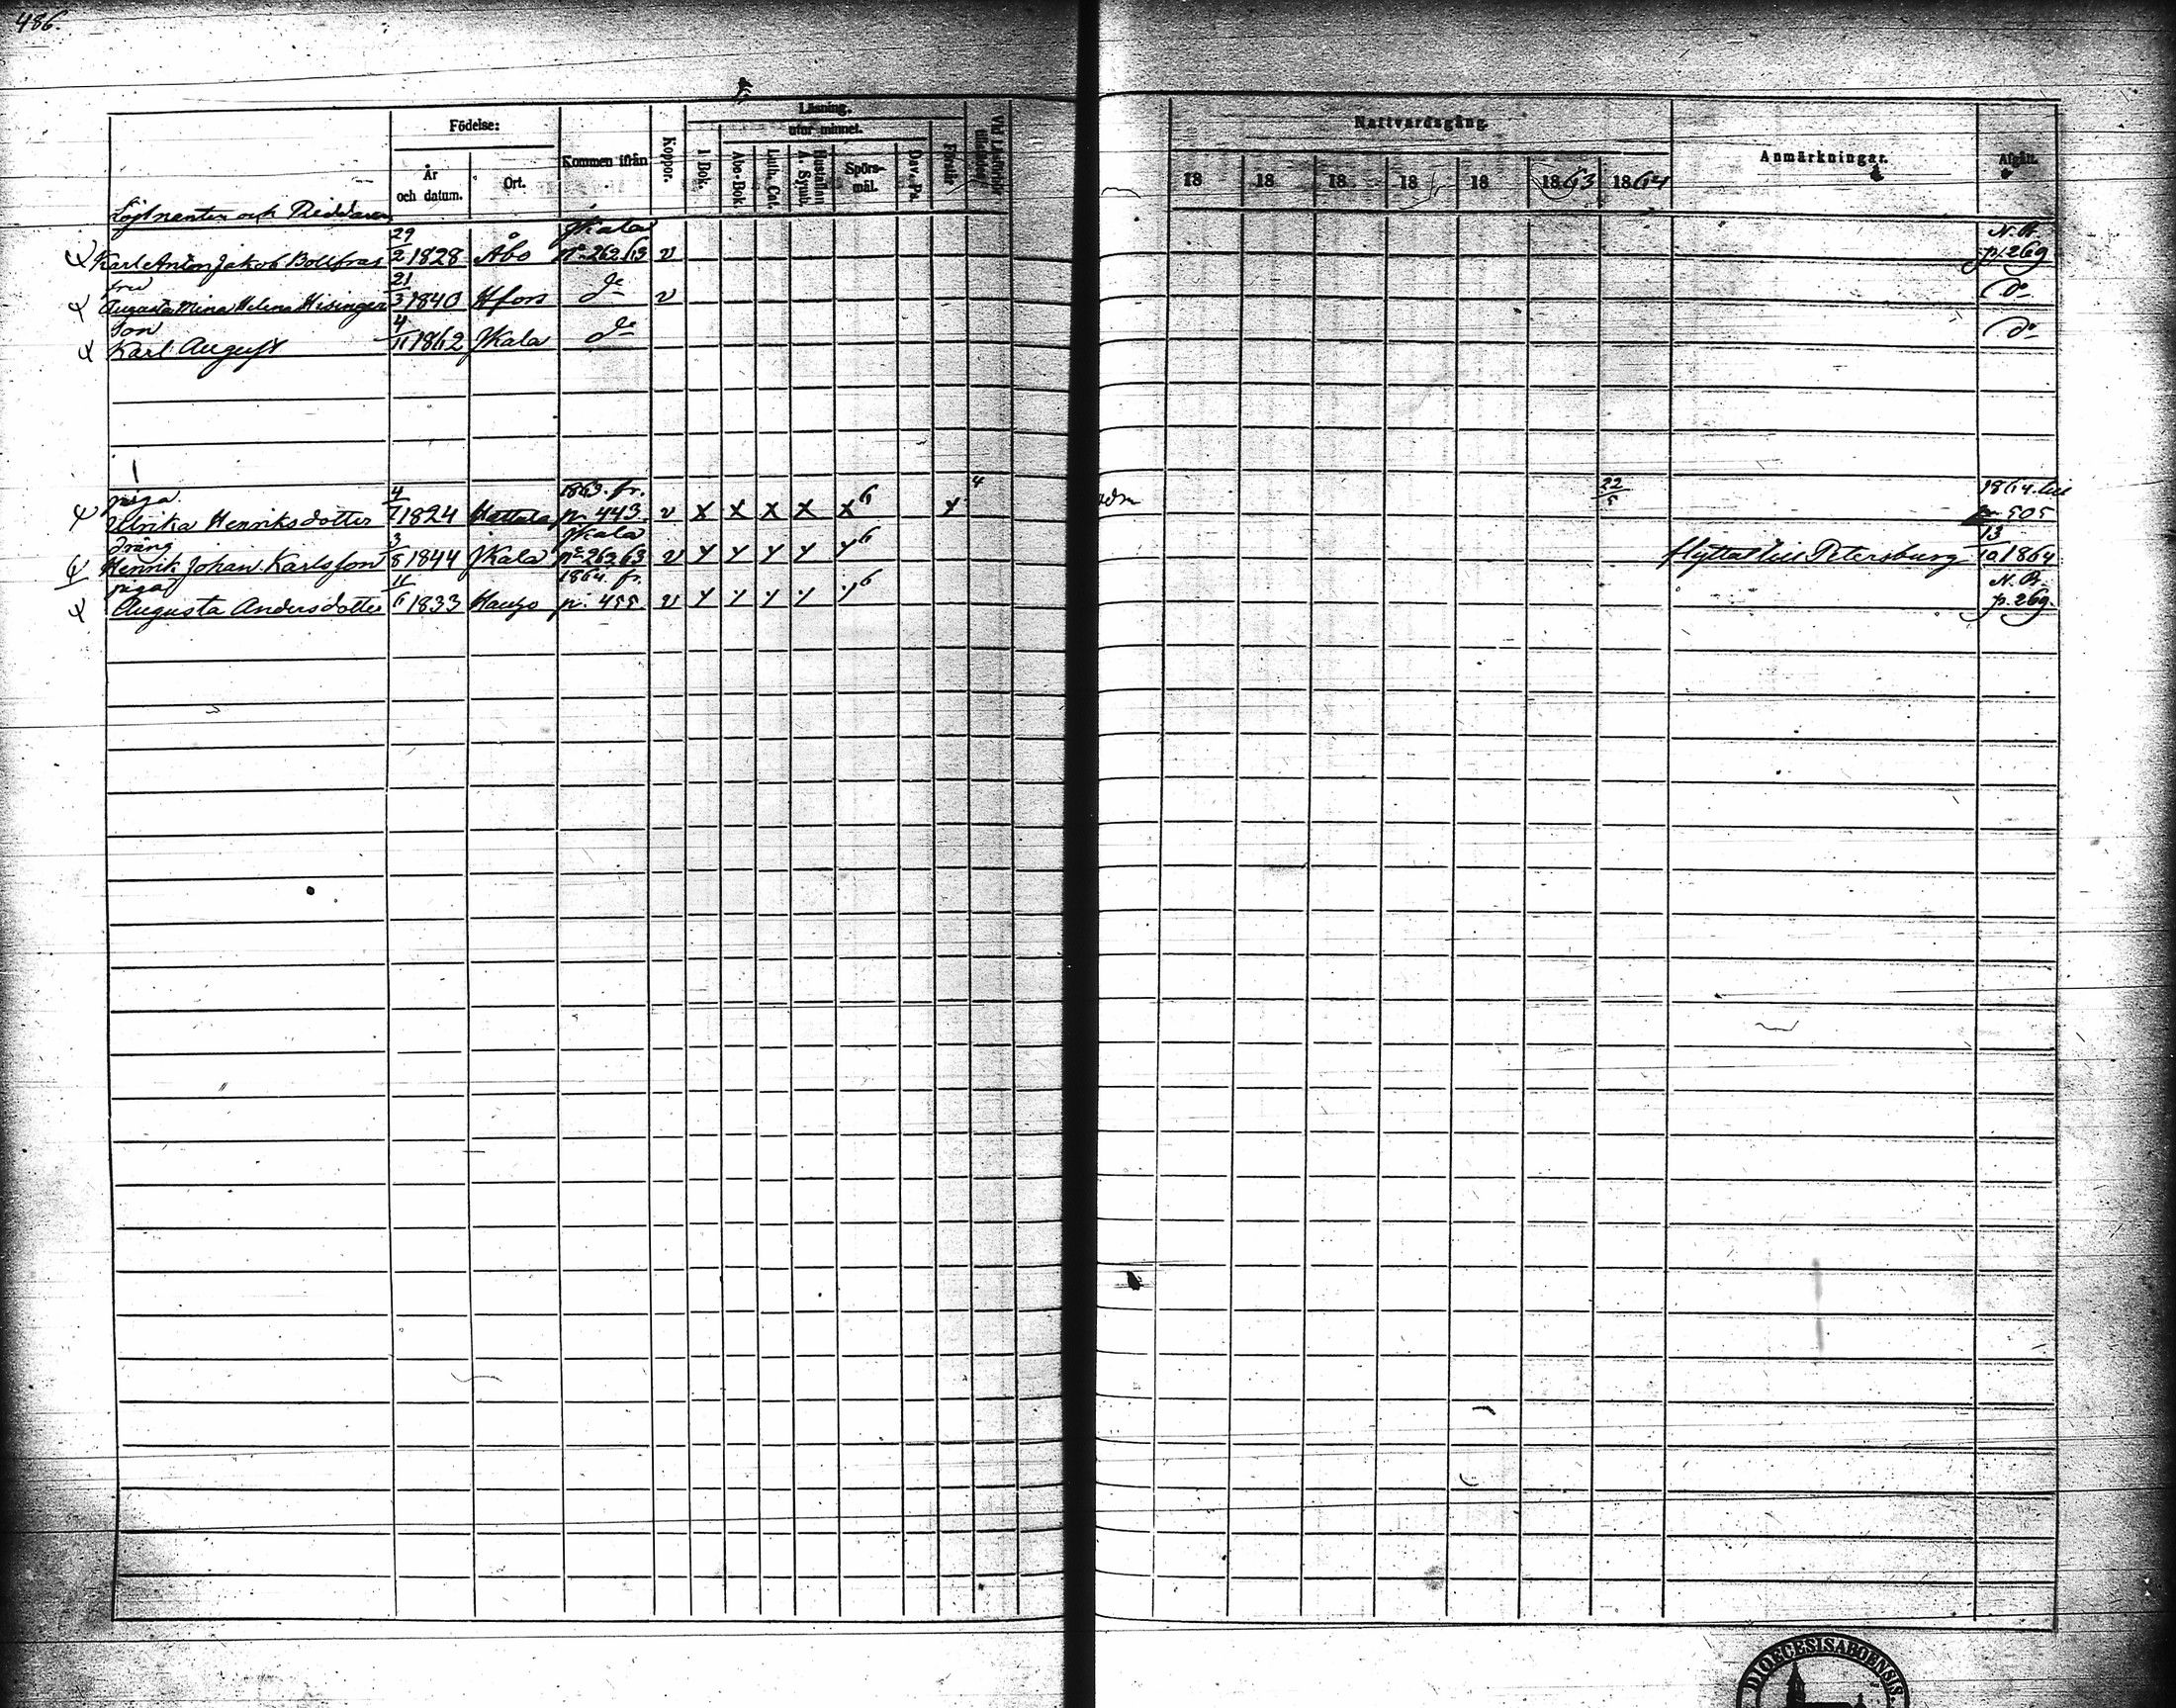 486.
Läsning.
Födelse: utur minnet. Nattvardsgång.
Kommen ifrån Koppor. I Bok. Abc-Bok Luth. Cat. Hustaflan A. Symb. Spörsmål. Dav. Ps. Förstår Vid Läsförhör Anmärkningar. Afgått.
År och datum. Ort. 18 18 18 18 18 1863 1864
Löjtnanten och Riddaren
Karl Anton Jakob 29/2 1828 Åbo JKala No 262/63 v N.B. p. 269
fru
Augusta Mina Helena Hisinger 21/3 1840 Hfors do v do
Son
Karl August 4/11 1862 JKala do do
piga
Ulrika Henriksdotter 4/7 1824 Hattula 1863. fr. p. 443. v x x x x x 6 x 4 22/5 1864. till p. 505
dräng
Henrik Johan Karlsson 3/8 1844 JKala JKala No 262 63 v y y y y y 6 flyttat till Petersburg 13/10 1864
piga
Augusta Andersdotter 4/6 1833 Hauho 1864. fr. p. 455 v y y y y y 6 N.B. p. 269.
DIOECESIS ABOENSIS.